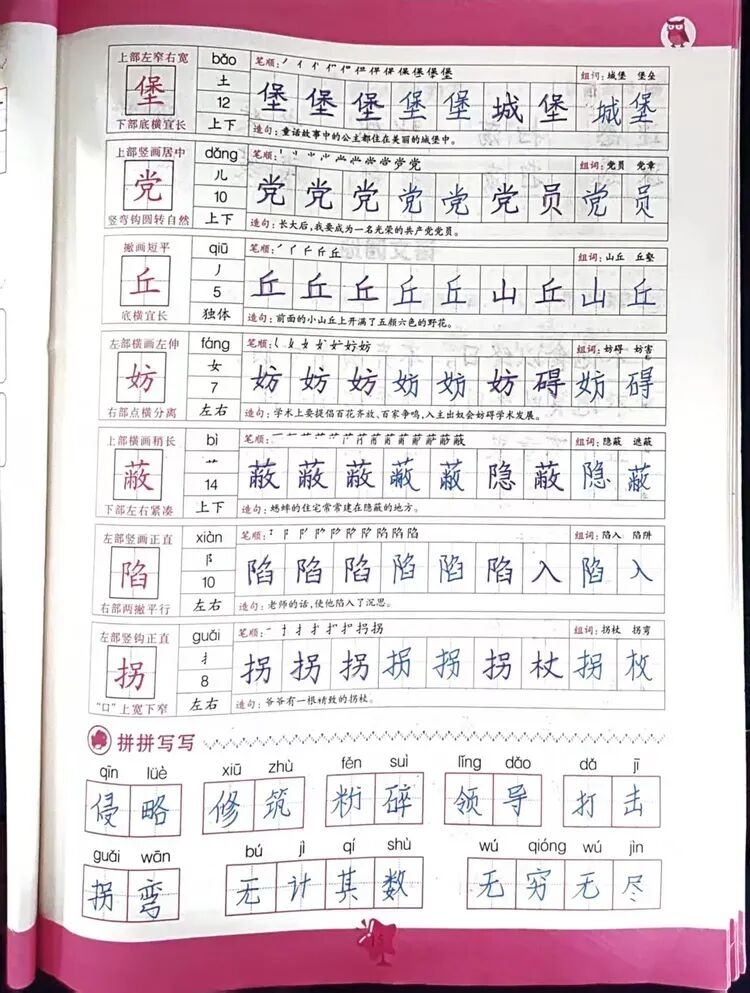 上部左窄右宽 bǎo 笔顺: 组词:城堡 堡垒
堡 土
12 堡 堡 堡 堡 堡 城 堡 城 堡
下部底横宜长 上下 造句:童话故事中的公主都住在美丽的城堡中。
上部竖画居中 dǎng 笔顺: 组词:党员 党章
党 儿
10 党 党 党 党 党 党 员 党 员
竖弯钩圆转自然 上下 造句:长大后,我要成为一名光荣的共产党党员。
撇画短平 qiū 笔顺: 组词:山丘 丘壑
丘 丿
5 丘 丘 丘 丘 丘 山 丘 山 丘
底横宜长 独体 造句:前面的小山丘上开满了五颜六色的野花。
左部横画左伸 fáng 笔顺: 组词:妨碍 妨害
妨 女
7 妨 妨 妨 妨 妨 妨 碍 妨 碍
右部点横分离 左右 造句:学术上要提倡百花齐放、百家争鸣,入主出奴会妨碍学术发展。
上部横画稍长 bì 笔顺: 组词:隐蔽 遮蔽
蔽 艹
14 蔽 蔽 蔽 蔽 蔽 隐 蔽 隐 蔽
下部左右紧凑 上下 造句:蟋蟀的住宅常常建在隐蔽的地方。
左部竖画正直 xiàn 笔顺: 组词:陷入 陷阱
陷 阝
10 陷 陷 陷 陷 陷 陷 入 陷 入
右部两撇平行 左右 造句:老师的话,使他陷入了沉思。
左部竖钩正直 guǎi 笔顺: 组词:拐杖 拐弯
拐 扌
8 拐 拐 拐 拐 拐 拐 杖 拐 杖
“口”上宽下窄 左右 造句:爷爷有一根精致的拐杖。
拼拼写写
qīn lüè xiū zhù fěn suì lǐng dǎo dǎ jī
侵略 修筑 粉碎 领导 打击
guǎi wān bú jì qí shù wú qióng wú jìn
拐弯 无计其数 无穷无尽
15